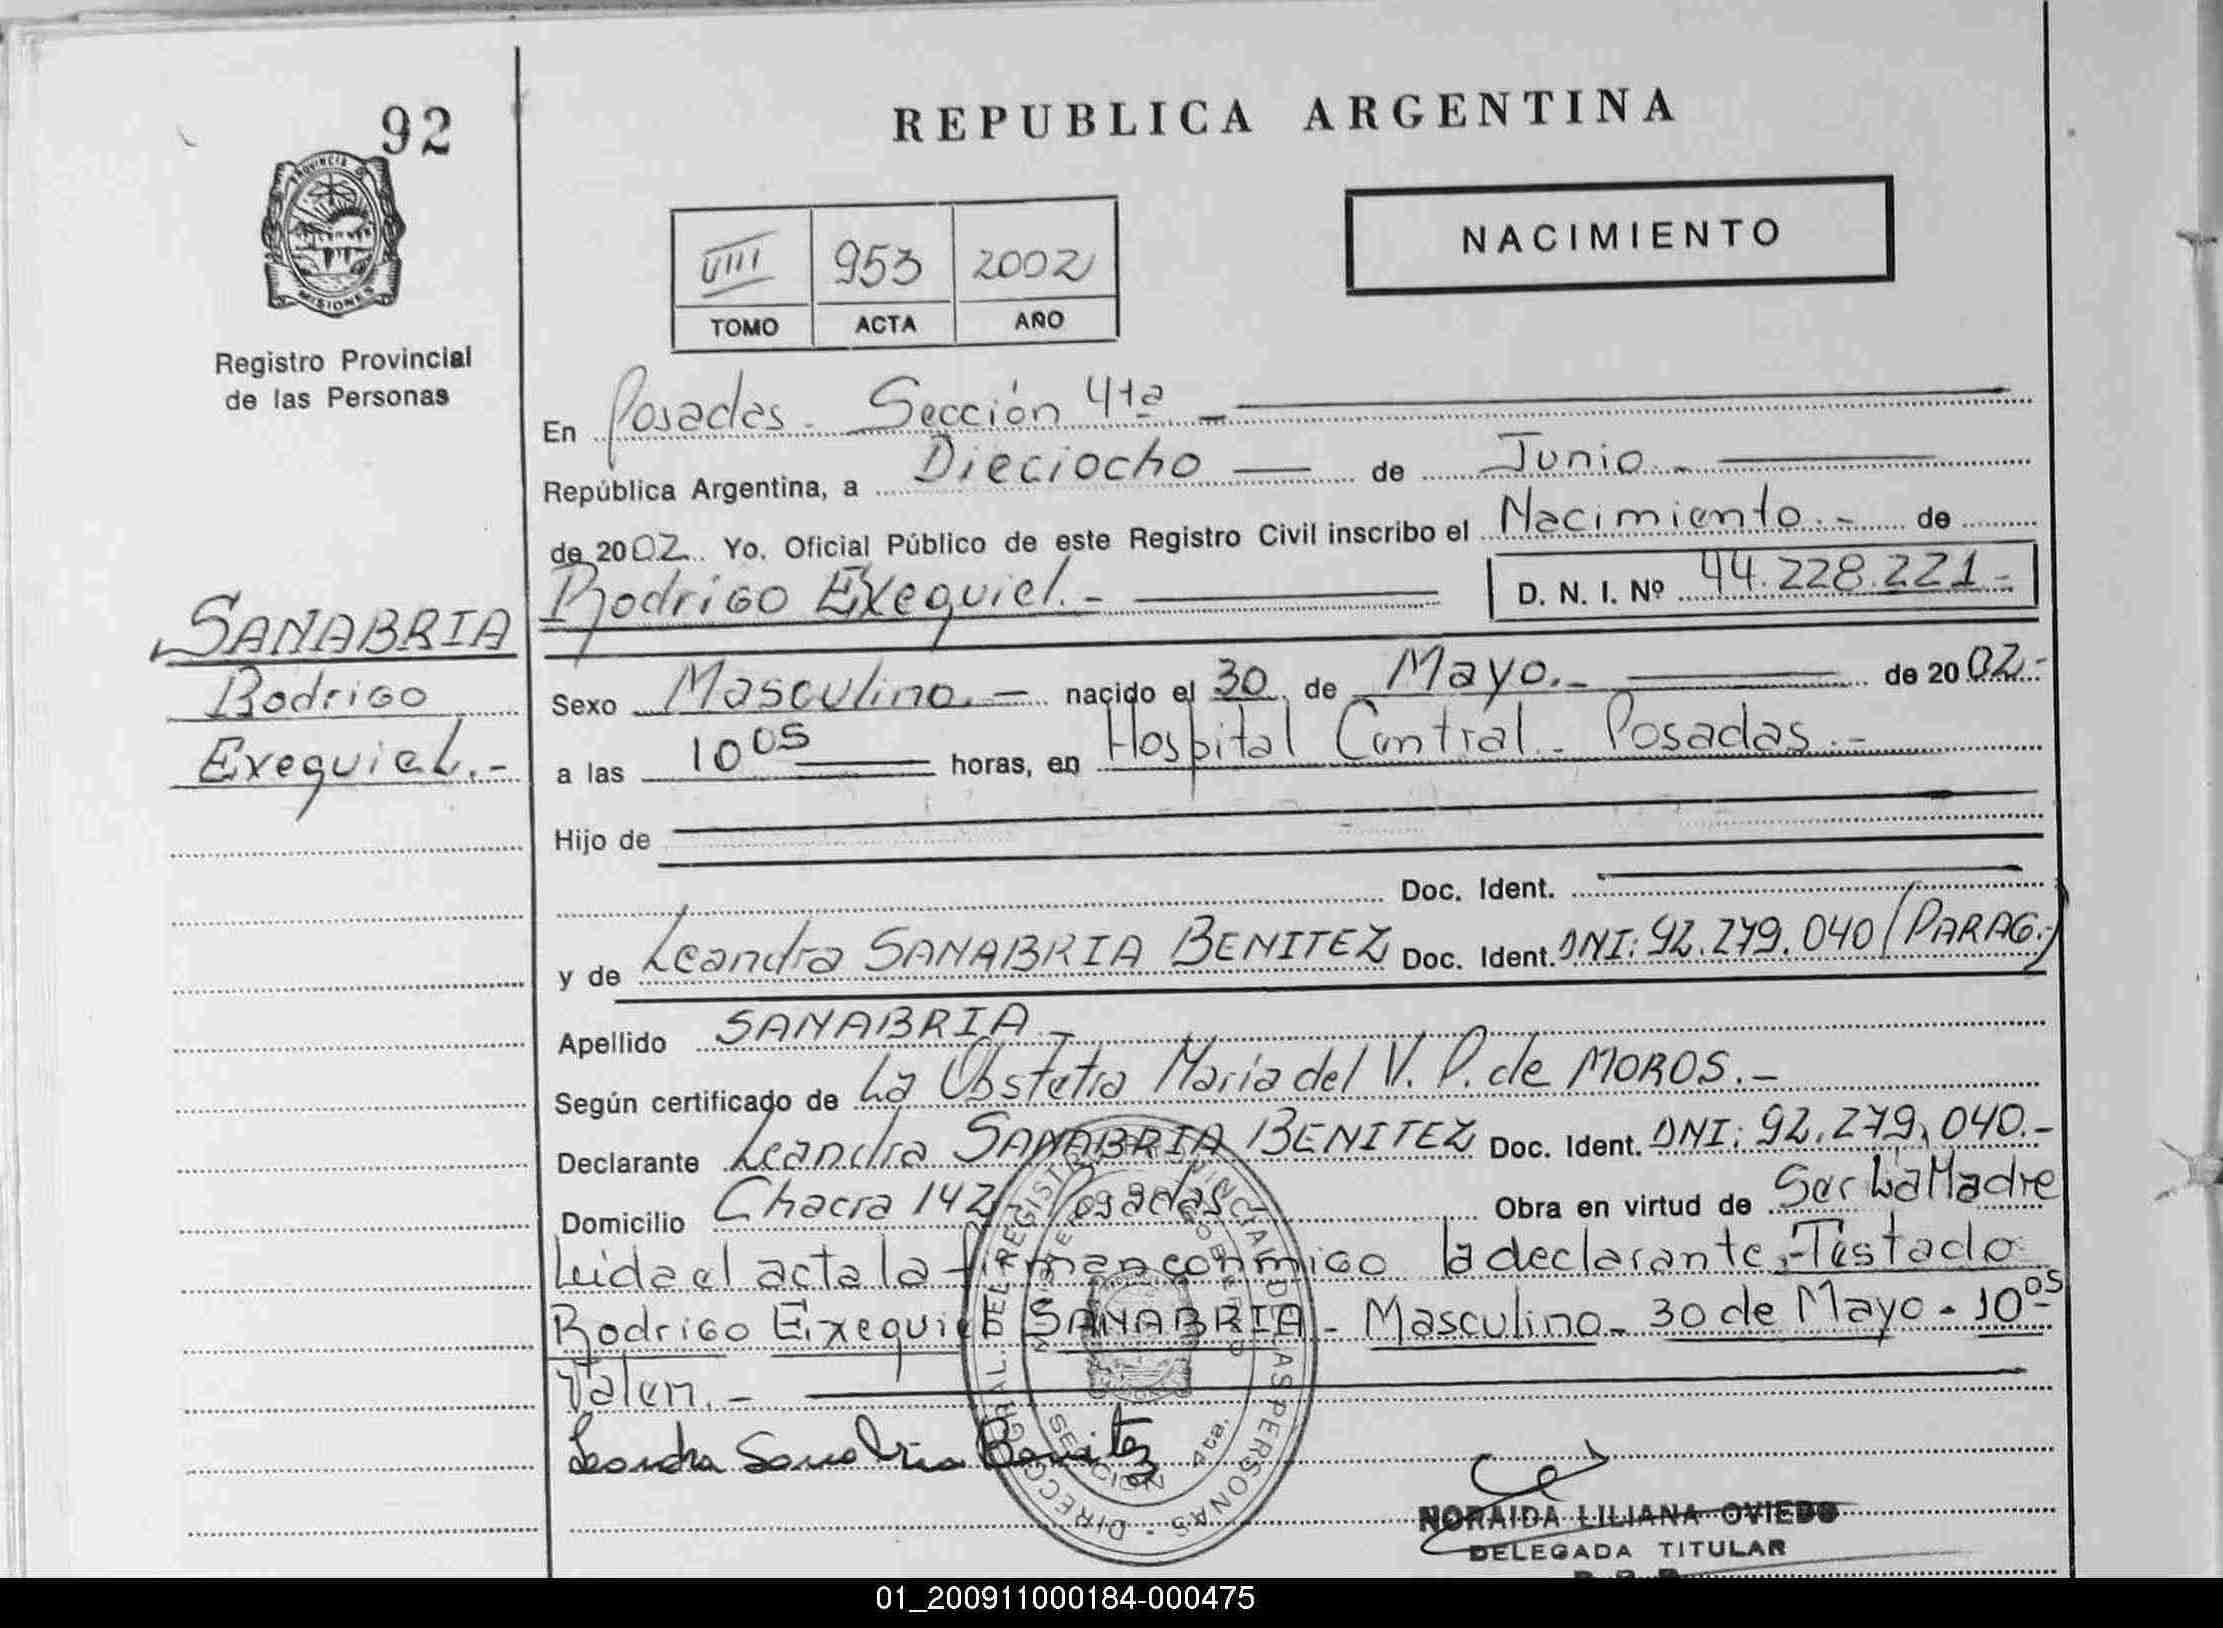 92
PROVINCIA DE
MISIONES
Registro Provincial
de las Personas
SANABRIA
Rodrigo
Exequiel.-
REPUBLICA ARGENTINA
NACIMIENTO
VIII 953 2002
TOMO ACTA AÑO
En Posadas - Sección 4ta -
República Argentina, a Dieciocho de Junio.-
de 2002. Yo, Oficial Público de este Registro Civil inscribo el Nacimiento.- de
Rodrigo Exequiel.- D. N. I. Nº 44.228.221.-
Sexo Masculino.- nacido el 30 de Mayo.- de 2002.-
a las 10 05 horas, en Hospital Central - Posadas.-
Hijo de
Doc. Ident.
y de Leandra SANABRIA BENITEZ Doc. Ident. DNI: 92.279.040 (PARAG.)
Apellido SANABRIA.-
Según certificado de La Obstetra María del V. P. de MOROS.-
Declarante Leandra SANABRIA BENITEZ Doc. Ident. DNI: 92.279.040.-
Domicilio Chacra 142 Posadas.- Obra en virtud de Ser La Madre
Leida el acta la firman conmigo la declarante.- Testado
Rodrigo Exequiel SANABRIA - Masculino - 30 de Mayo - 10 05
Valen.-
Leandra Sanabria Benitez
DIRECCION GRAL. DEL REGISTRO PROVINCIAL DE LAS PERSONAS
SECCION 4ta.
NORAIDA LILIANA OVIEDO
DELEGADA TITULAR
01_200911000184-000475